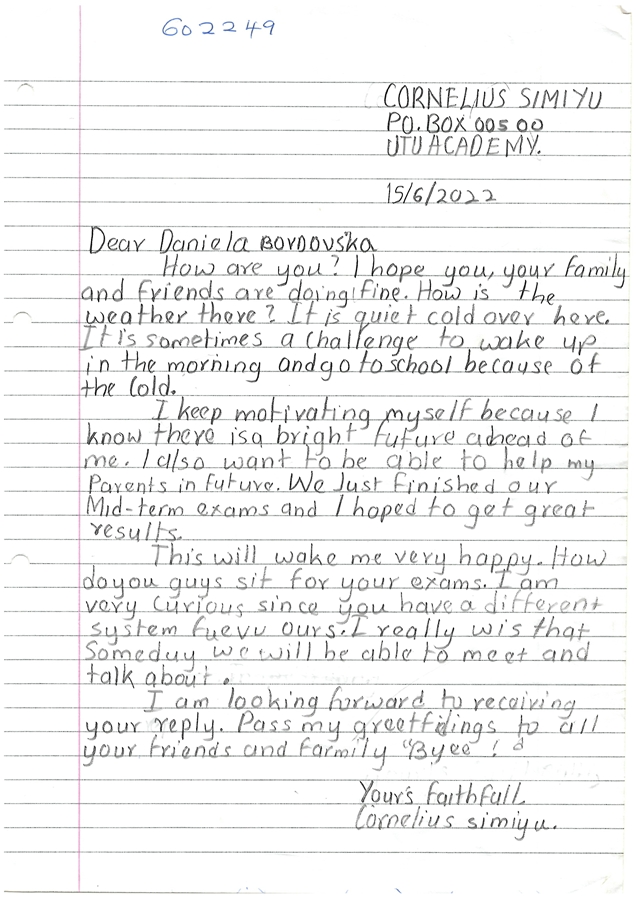 602249
CORNELIUS SIMIYU
PO. BOX 00500
UTU ACADEMY.
15/6/2022
Dear Daniela BOVDOVSKA
How are you? I hope you, your family
and friends are doing fine. How is the
weather there? It is quiet cold over here.
It is sometimes a challenge to wake up
in the morning and go to school because of
the Cold.
I keep motivating myself because I
know there is a bright future ahead of
me. I also want to be able to help my
Parents in future. We Just finished our
Mid-term exams and I hoped to get great
results.
This will wake me very happy. How
do you guys sit for your exams. I am
very Curious since you have a different
system fuevu ours. I really wis that
Someduy we will be able to meet and
talk about.
I am looking forward to receiving
your reply. Pass my greetfidings to all
your friends and farmily "Byee!
Your's Faithfull
Cornelius simiyu.